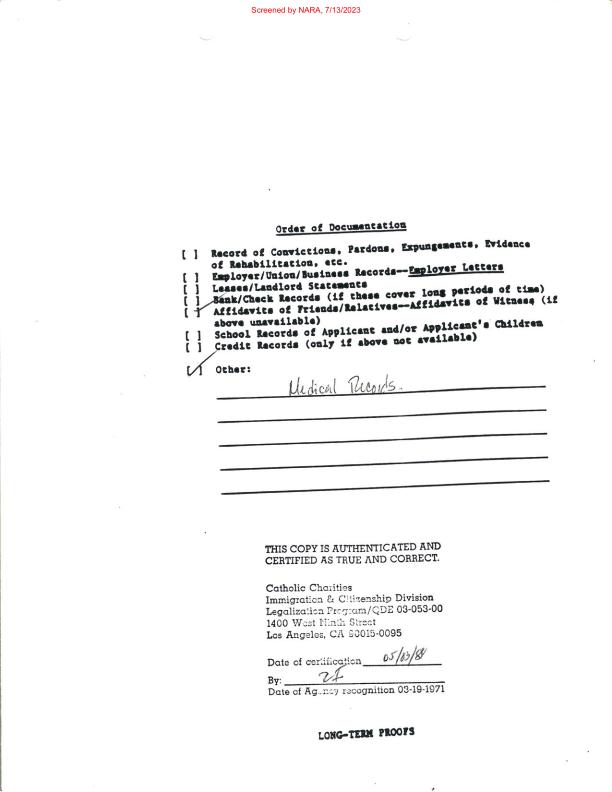 Screened by NARA, 7/13/2023
Order of Documentation
[ ] Record of Convictions, Pardons, Expungements, Evidence
of Rehabilitation, etc.
[ ] Employer/Union/Business Records--Employer Letters
[ ] Leases/Landlord Statements
[ ] Bank/Check Records (if these cover long periods of time)
[✓] Affidavits of Friends/Relatives--Affidavits of Witness (if
above unavailable)
[ ] School Records of Applicant and/or Applicant's Children
[ ] Credit Records (only if above not available)
[✓] Other:
Medical Records.
THIS COPY IS AUTHENTICATED AND
CERTIFIED AS TRUE AND CORRECT.
Catholic Charities
Immigration & Citizenship Division
Legalization Program/QDE 03-053-00
1400 West Ninth Street
Los Angeles, CA 90015-0095
Date of certification 05/03/88
By:
Date of Agency recognition 03-19-1971
LONG-TERM PROOFS